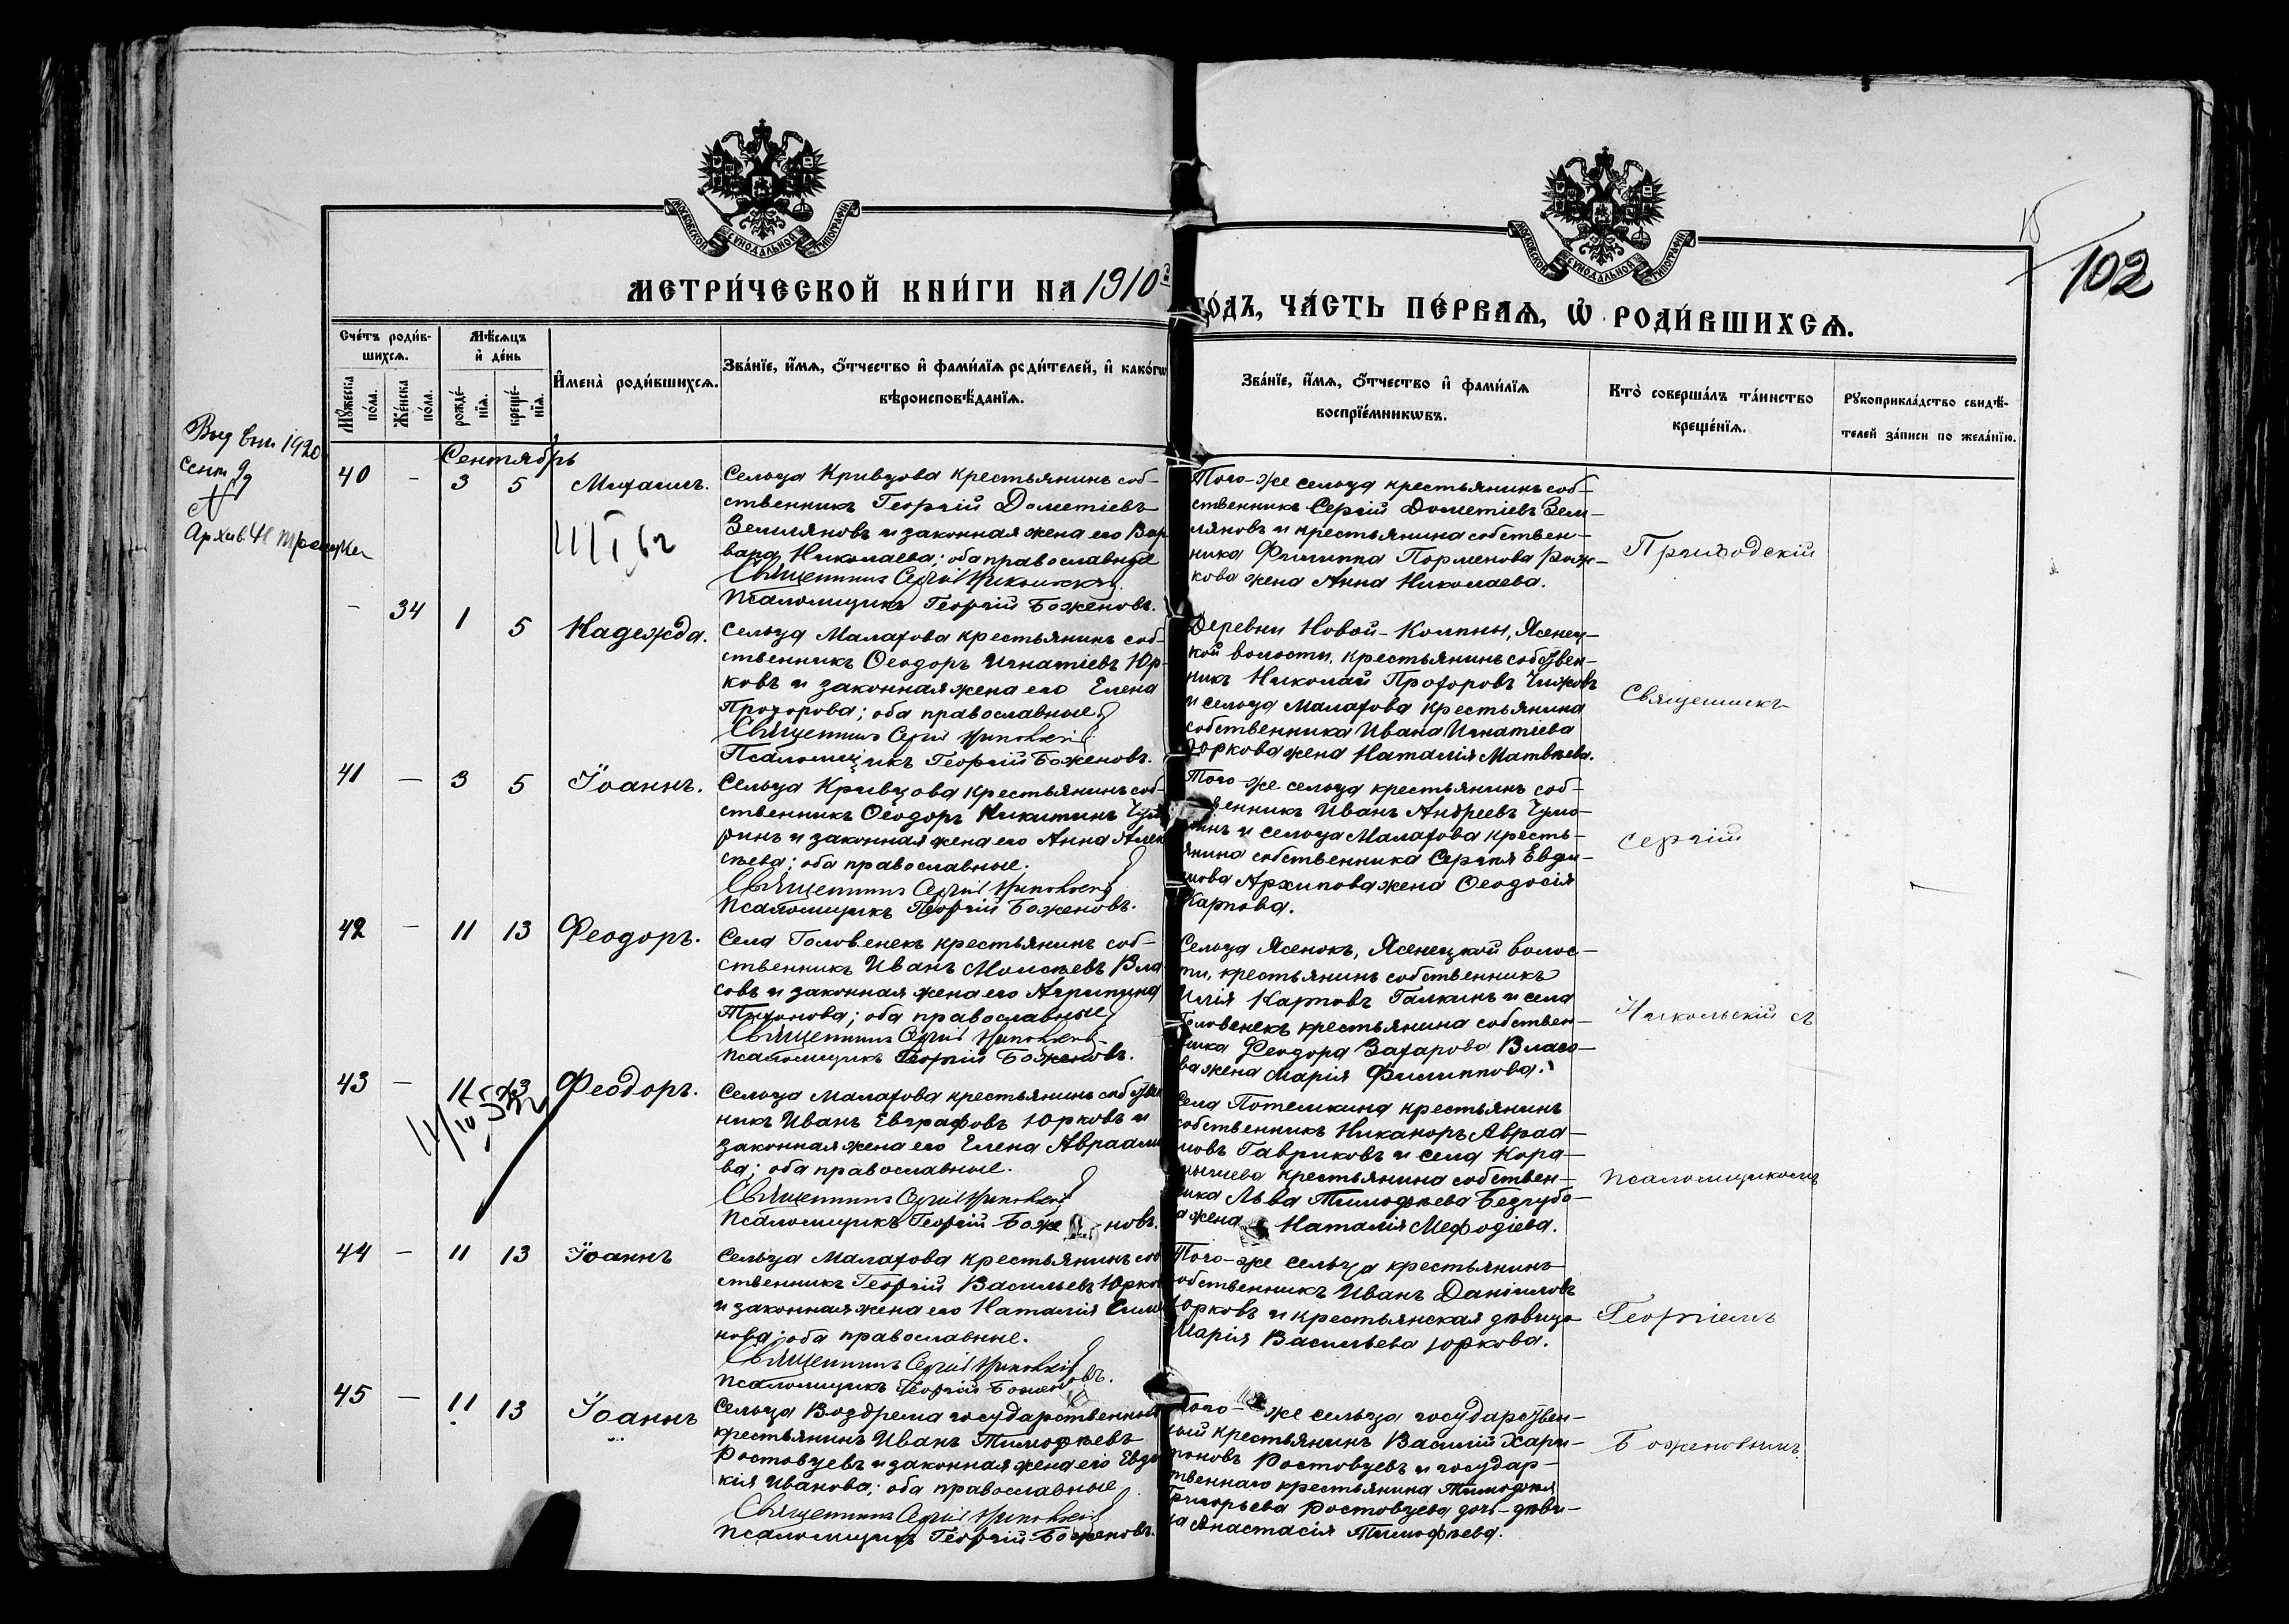 МОСКОВСКОЙ СУНОДАЛЬНОЙ ТИПОГРАФІИ
МОСКОВСКОЙ СУНОДАЛЬНОЙ ТИПОГРАФІИ
102
МЕТРИ́ЧЕСКОЙ КНИ́ГИ НА 1910й
ГО́ДЪ, ЧА́СТЬ ПЕ́РВАѦ, Ѡ҆ РОДИ́ВШИХСѦ.
Сче́тъ роди́в-
шихсѧ.
Мꙋ́жеска по́ла.
Же́нска по́ла.
Мѣ́сѧцъ
и҆ де́нь
рожде́-нїѧ.
креще́-нїѧ.
И҆мена̀ роди́вшихсѧ.
Зва́нїе, и҆́мѧ, ѻ҆́тчество и҆ фами́лїѧ роди́телей, и҆ како́гѡ
вѣроисповѣ́данїѧ.
Зва́нїе, и҆́мѧ, ѻ҆́тчество и҆ фами́лїѧ
воспрїе́мникѡвъ.
Кто̀ соверша́лъ та́инство
креще́нїѧ.
Рꙋкоприкла́дство свидѣ́-
телей за́писи по жела́нїю.
1920
сент 9
Архив
Сентябрь
40 - 3 5 Михаилъ.
Сельца Кривцова крестьянинъ соб-
ственникъ Георгій Дометіевъ
Земляновъ и законная жена его Вар
вара Николаева; оба православные
Священникъ Сергій Никольскій
Псаломщикъ Георгій Боженовъ.
Того-же сельца крестьянинъ соб-
ственникъ Сергій Дометіевъ Зем-
ляновъ и крестьянина собствен-
ника Филиппа Порменова Рож-
кова жена Анна Николаева.
Приходскій
- 34 1 5 Надежда.
Сельца Малахова крестьянинъ соб-
ственникъ Ѳеодоръ Игнатіевъ Юр-
ковъ и законная жена его Елена
Прохорова; оба православные
Священникъ Сергій Никольскій
Псаломщикъ Георгій Боженовъ.
Деревни Новой-Колпны, Ясенец-
кой волости, крестьянинъ собствен-
никъ Николай Прохоровъ Чижовъ
и сельца Малахова крестьянина
собственника Ивана Игнатіева
Юркова жена Наталія Матвѣева.
Священникъ
41 - 3 5 Іоаннъ.
Сельца Кривцова крестьянинъ соб-
ственникъ Ѳеодоръ Никитинъ
ринъ и законная жена его Анна Алек
сѣева; оба православные.
Священникъ Сергій Никольскій
Псаломщикъ Георгій Боженовъ.
Того-же сельца крестьянинъ соб-
ственникъ Иванъ Андреевъ
и сельца Малахова кресть-
янина собственника Сергія Евфи-
мова Архипова жена Ѳеодосія
Карпова.
Сергій
42 - 11 13 Ѳеодоръ.
Села Головенекъ крестьянинъ соб-
ственникъ Иванъ Моисѣевъ Вла
совъ и законная жена его Агрипина
Тихонова; оба православные
Священникъ Сергій Никольскій
Псаломщикъ Георгій Боженовъ.
Сельца Ясенокъ, Ясенецкой волос-
ти, крестьянинъ собственникъ
Илія Карповъ Галкинъ и села
Головенекъ крестьянина собствен-
ника Ѳеодора Захарова Власо-
ва жена Марія Филиппова.
Никольскій съ
43 - 11 13 Ѳеодоръ.
Сельца Малахова крестьянинъ собствен
никъ Иванъ Евграфовъ Юрковъ и
законная жена его Елена Авраамо
ва; оба православные.
Священникъ Сергій Никольскій
Псаломщикъ Георгій Боже новъ.
Села Потемкина крестьянинъ
собственникъ Никаноръ Авраа-
мовъ Гавриковъ и села Кара-
мышева крестьянина собствен-
ника Льва Тимофѣева Беззубо-
ва жена Наталія Меѳодіева.
псаломщикомъ
44 - 11 13 Іоаннъ
Сельца Малахова крестьянинъ соб
ственникъ Георгій Васильевъ Юрков
и законная жена его Наталія Симо
нова; оба православные.
Священникъ Сергій Никольскій
Псаломщикъ Георгій Боженовъ.
Того-же сельца крестьянинъ
собственникъ Иванъ Даніиловъ
Юрковъ и крестьянская дѣвица
Марія Васильева Юркова.
Георгіемъ
45 - 11 13 Іоаннъ
Сельца Воздрема государственный
крестьянинъ Иванъ Тимофѣевъ
Ростовцевъ и законная жена его Евдо
кія Иванова; оба православные
Священникъ Сергій Никольскій
Псаломщикъ Георгій Боженовъ.
Того-же сельца государствен-
ный крестьянинъ Василій Хари-
тоновъ Ростовцевъ и государ-
ственнаго крестьянина Тимофея
Григорьева Ростовцева дочь-дѣви-
ца Анастасія Тимофѣева.
Боженовымъ.